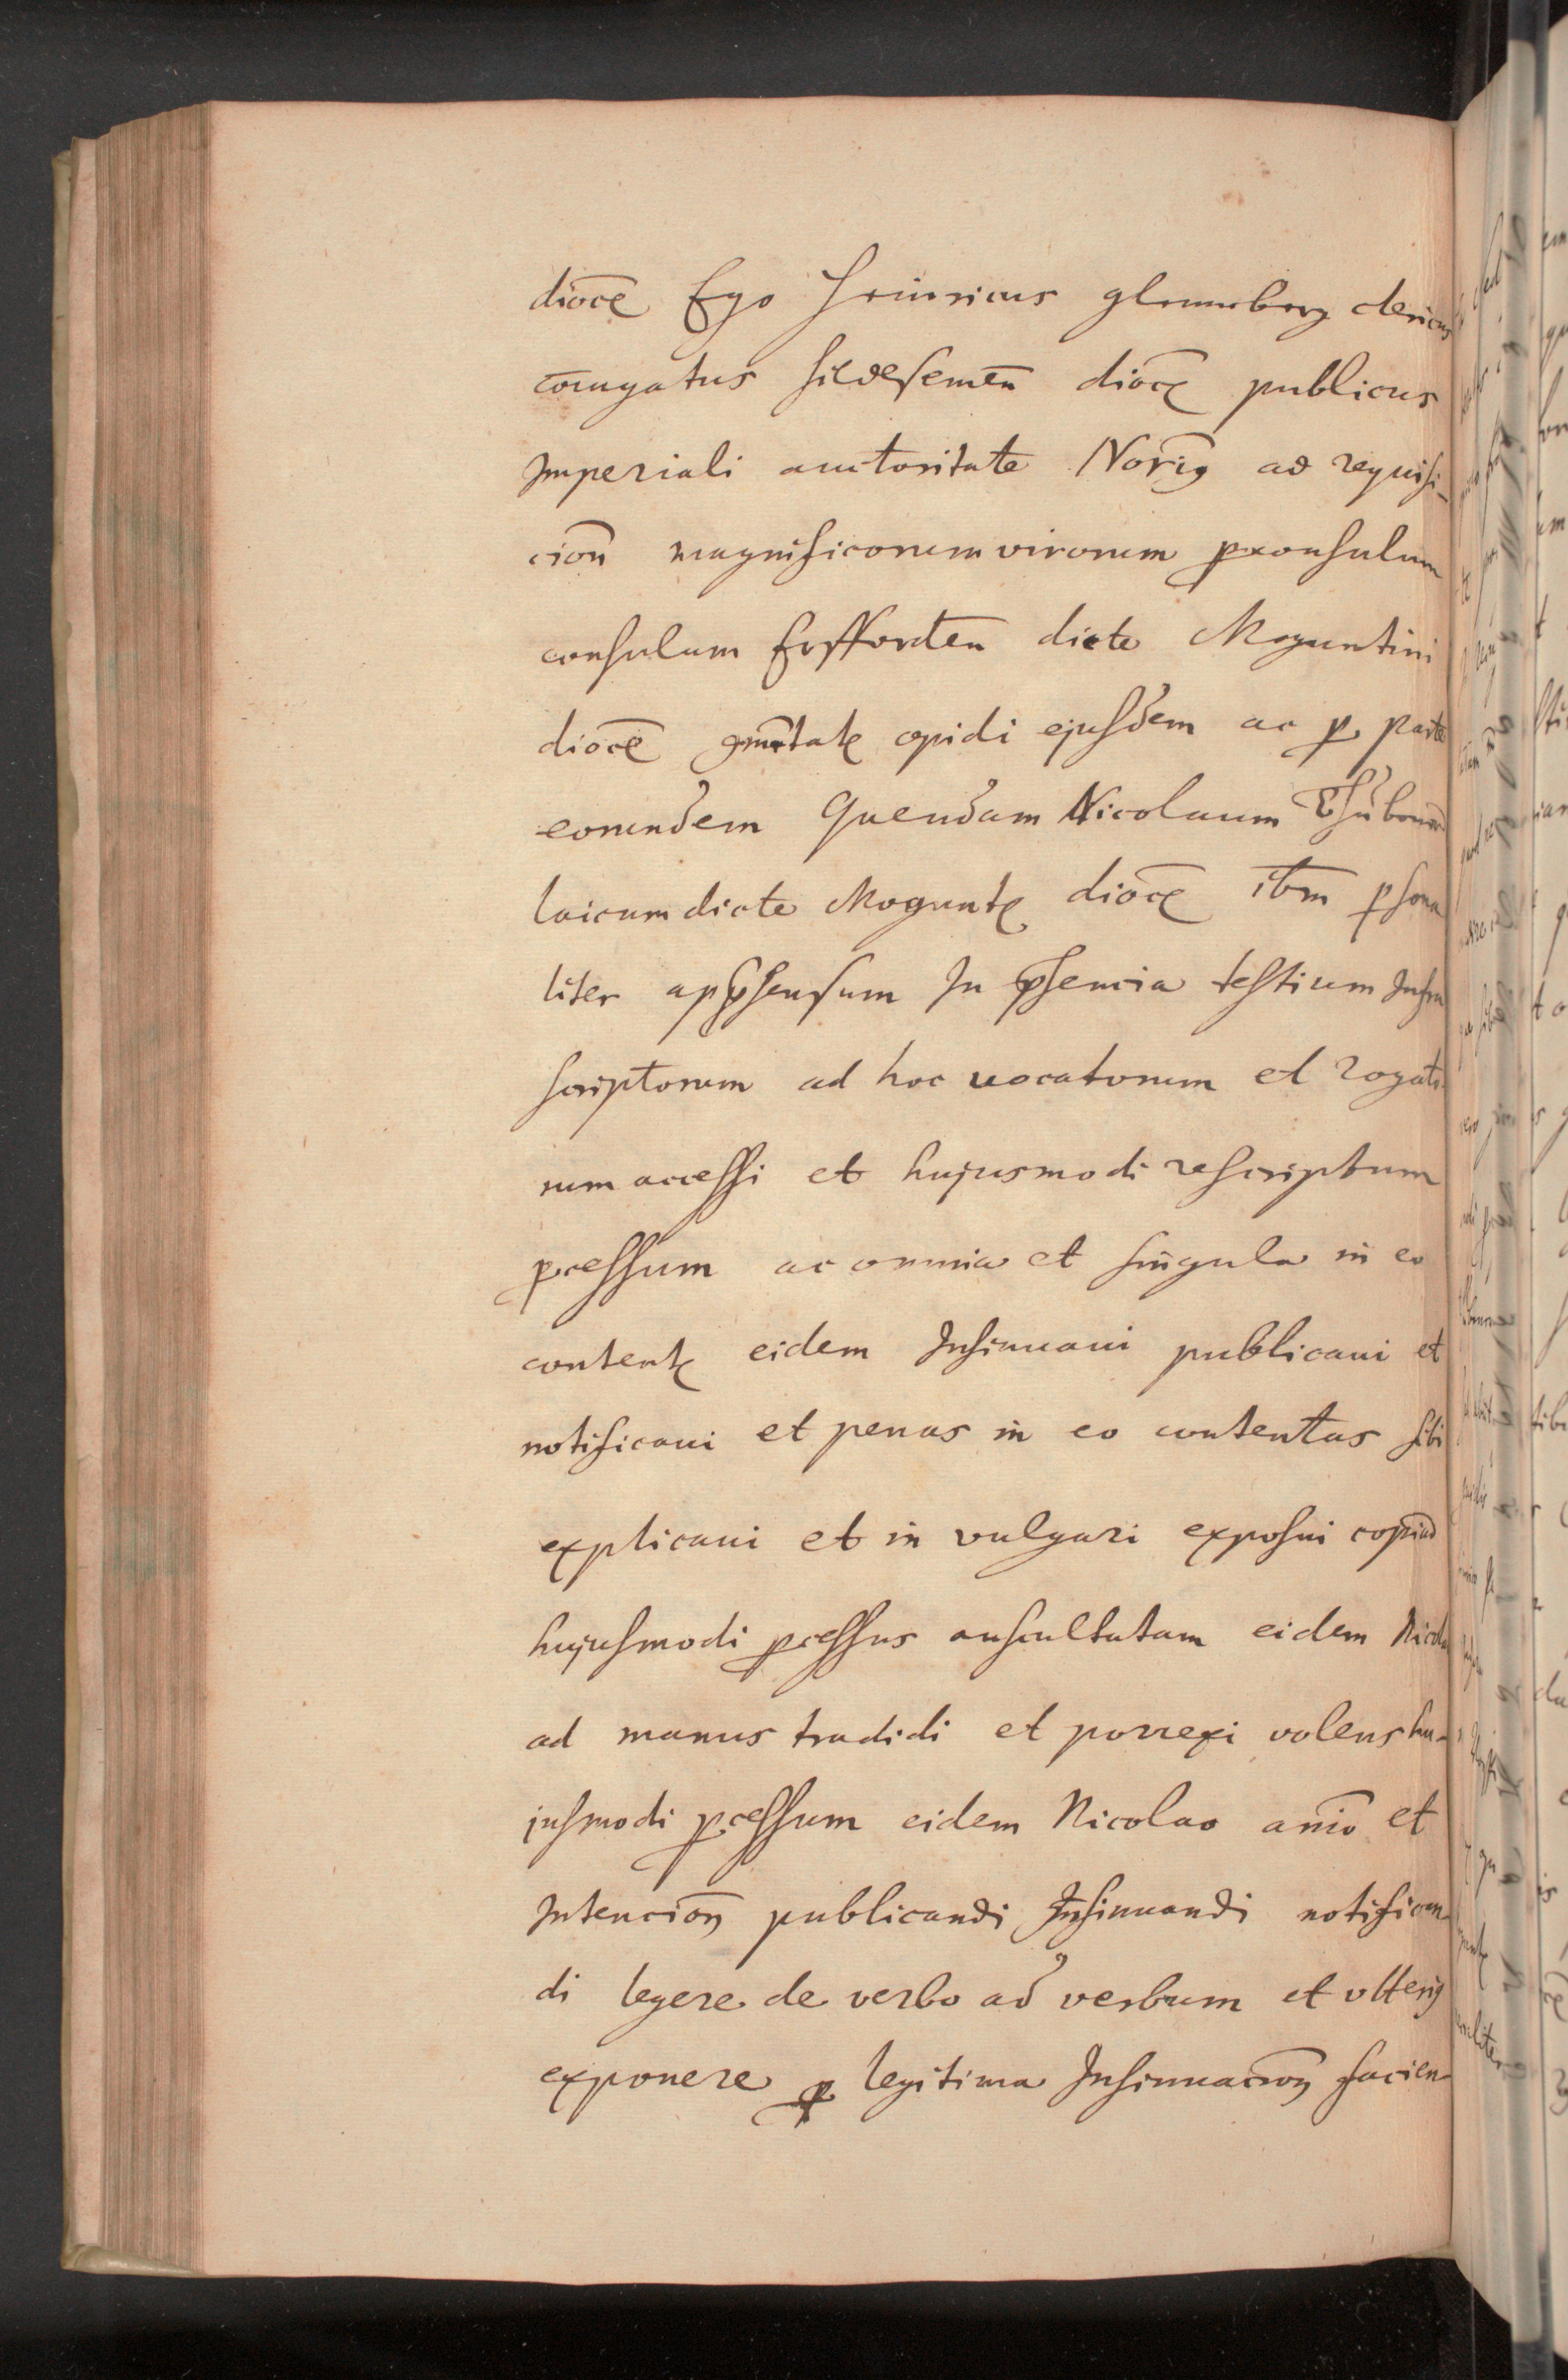 dioc̄ Ego Heinricus glemeberg clericus
c̄oiugatus hildesemeñ dioc̄ publicus
Imperiali auctoritate Nor̄iꝰ ad requisi-
cion̄ magnificorum virorum proconsulum
consulum Erfforden̄ dicte Moguntini
dioc̄ ꝯmitatꝭ opidi ejusdem ac ꝑ parte
eorundem Quendam Nicolaum
laicum dicte Moguntꝭ dioc̄ ibm̄ ꝑsona
liter apꝓhensum In p̄sencia testium Infra
scriptorum ad hoc uocatorum et rogato
rum accessi et hujusmodi rescriptum
ꝓcessum ac omnia et singula in eo
contentꝭ eidem Insinuaui publicaui et
notificaui et penas in eo contentas sibi
explicaui et in vulgari exposui copiād
hujusmodi ꝓcessus auscultatam eidem Nicola
ad manus tradidi et porrexi volens hu-
jusmodi ꝓcessum eidem Nicolao anīo et
Intencion̄ publicandi Insinuandi notifican
di legere de verbo ad verbum et vlteriꝰ
exponere ꝓ legitima Insinuacion̄ facien